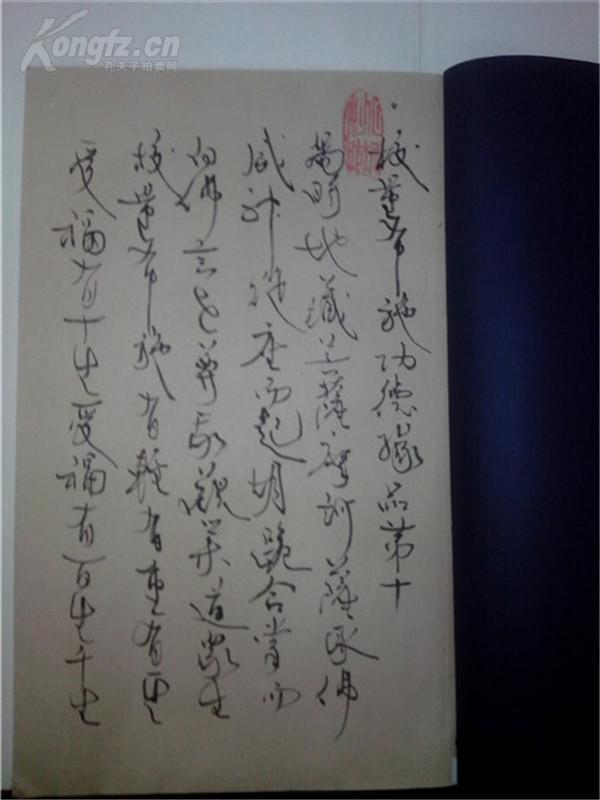 Kongfz.cn
孔夫子拍卖网
校量布施功德緣品第十
爾时地藏菩薩摩訶薩承佛
威神從座而起胡跪合掌而
白佛言世尊我觀業道眾生
校量布施有輕有重有一生
受福有十生受福有百生千生